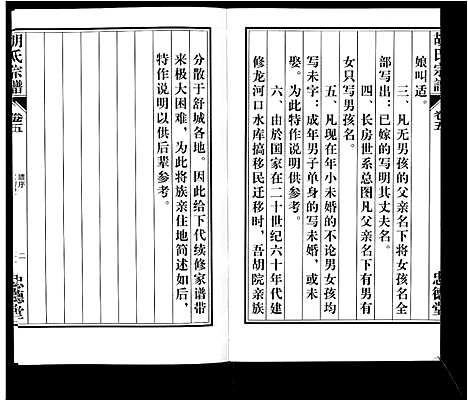 胡氏宗譜
卷五
忠德堂
娘叫适。
三、凡无男孩的父亲名下将女孩名全
部写出；已嫁的写明其丈夫名。
四、长房世系总图凡父亲名下有男有
女只写男孩名。
五、凡现在年小未婚的不论男女孩均
写未字；成年男子单身的写未婚，或未
娶。为此特作说明供参考。
六、由於国家在二十世纪六十年代建
修龙河口水库搞移民迁移时，吾胡院亲族
分散于舒城各地。因此给下代续修家谱带
来极大困难，为此将族亲住地简述如后，
特作说明以供后辈参考。
胡氏宗譜
卷五
譜序
二
忠德堂